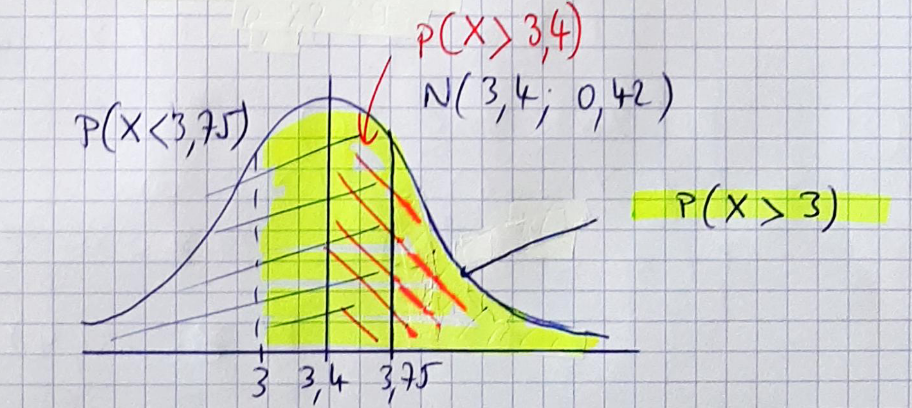 P(X>3,4)
N(3,4; 0,42)
P(X<3,75)
P(X>3)
3 3,4 3,75